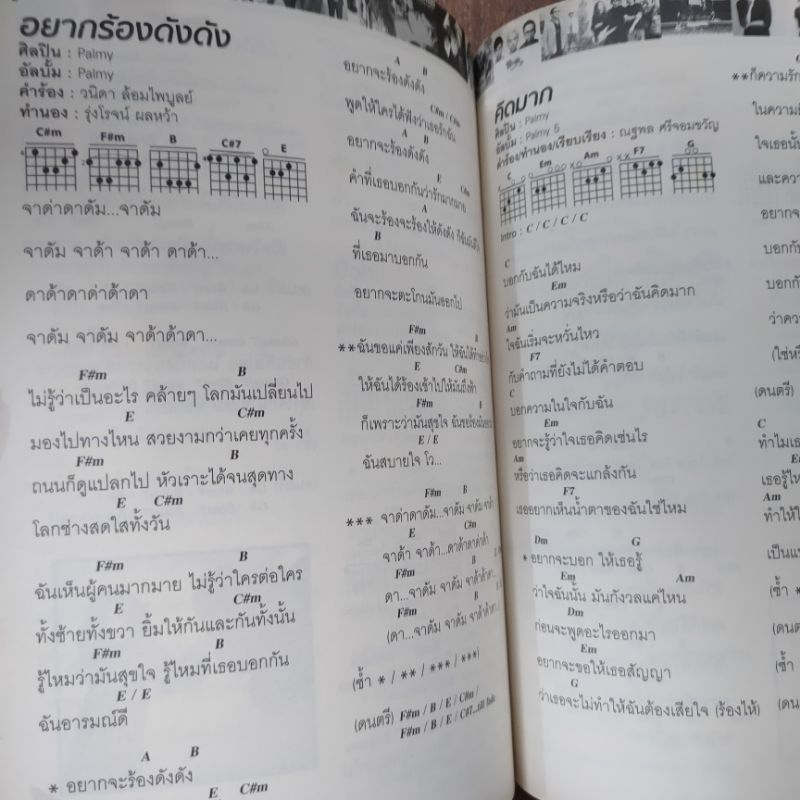 อยากร้องดังดัง
ศิลปิน : Palmy
อัลบั้ม : Palmy
คำร้อง : วนิดา ล้อมไพบูลย์
ทำนอง : รุ่งโรจน์ ผลหว้า
C#m F#m B C#7 E
จาด่าดาดัม...จาดัม
จาดัม จาด้า จาด้า ดาด้า...
ดาด้าดาด่าด้าดา
จาดัม จาดัม จาด้าด้าดา...
F#m B
ไม่รู้ว่าเป็นอะไร คล้ายๆ โลกมันเปลี่ยนไป
E C#m
มองไปทางไหน สวยงามกว่าเคยทุกครั้ง
F#m B
ถนนก็ดูแปลกไป หัวเราะได้จนสุดทาง
E C#m
โลกช่างสดใสทั้งวัน
F#m B
ฉันเห็นผู้คนมากมาย ไม่รู้ว่าใครต่อใคร
E C#m
ทั้งซ้ายทั้งขวา ยิ้มให้กันและกันทั้งนั้น
F#m B
รู้ไหมว่ามันสุขใจ รู้ไหมที่เธอบอกกัน
E / E
ฉันอารมณ์ดี
A B
* อยากจะร้องดังดัง
E C#m
A B
อยากจะร้องดังดัง
C#m / C#m
พูดให้ใครได้ฟังว่าเธอรักฉัน
A B
อยากจะร้องดังดัง
E C#m
คำที่เธอบอกกันว่ารักมากมาย
A
ฉันจะร้องจะร้องให้ดังดัง
B
ที่เธอมาบอกกัน
อยากจะตะโกนมันออกไป
F#m B
**ฉันขอแค่เพียงสักวัน ให้ฉันได้
E C#m
ให้ฉันได้ร้องเข้าไปให้มันถึงดาว
F#m B
ก็เพราะว่ามันสุขใจ
E / E
ฉันสบายใจ โว...
F#m B
*** จาด่าดาดัม...จาดัม จาดัม จาด้า
E C#m
จาด้า จาด้า...ดาด้าดาด่าด้า
F#m B
ดา...จาดัม จาดัม จาด้าด้าดา...
F#m B
(ดา...จาดัม จาดัม จาด้าด้าดา...
(ซ้ำ * / ** / *** / ***)
(ดนตรี) F#m / B / E / C#m /
F#m / B / E / C#7...
คิดมาก
ศิลปิน : Palmy
อัลบั้ม : Palmy 5
คำร้อง/ทำนอง/เรียบเรียง : ณฐพล ศรีจอมขวัญ
C Em Am F7 G
Intro : C / C / C / C
C
บอกกับฉันได้ไหม
Em
ว่ามันเป็นความจริงหรือว่าฉันคิดมาก
Am
ใจฉันเริ่มจะหวั่นไหว
F7
กับคำถามที่ยังไม่ได้คำตอบ
C
บอกความในใจกับฉัน
Em
อยากจะรู้ว่าใจเธอคิดเช่นไร
Am
หรือว่าเธอคิดจะแกล้งกัน
F7
เธออยากเห็นน้ำตาของฉันใช่ไหม
Dm G
* อยากจะบอก ให้เธอรู้
Em Am
ว่าใจฉันนั้น มันกังวลแค่ไหน
Dm
ก่อนจะพูดอะไรออกมา
Em
อยากจะขอให้เธอสัญญา
G
ว่าเธอจะไม่ทำให้ฉันต้องเสียใจ (ร้องไห้)
**ก็ความรัก
ในความ
ใจเธอนั้
และความ
อยากจะ
บอกกับ
บอกกับ
ว่าควา
(ใช่หรื
(ดนตรี)
C
ทำไมเธอ
Em
เธอรู้ไห
Am
ทำให้
เป็นแ
(ซ้ำ *
(ดนต
(ซ้ำ